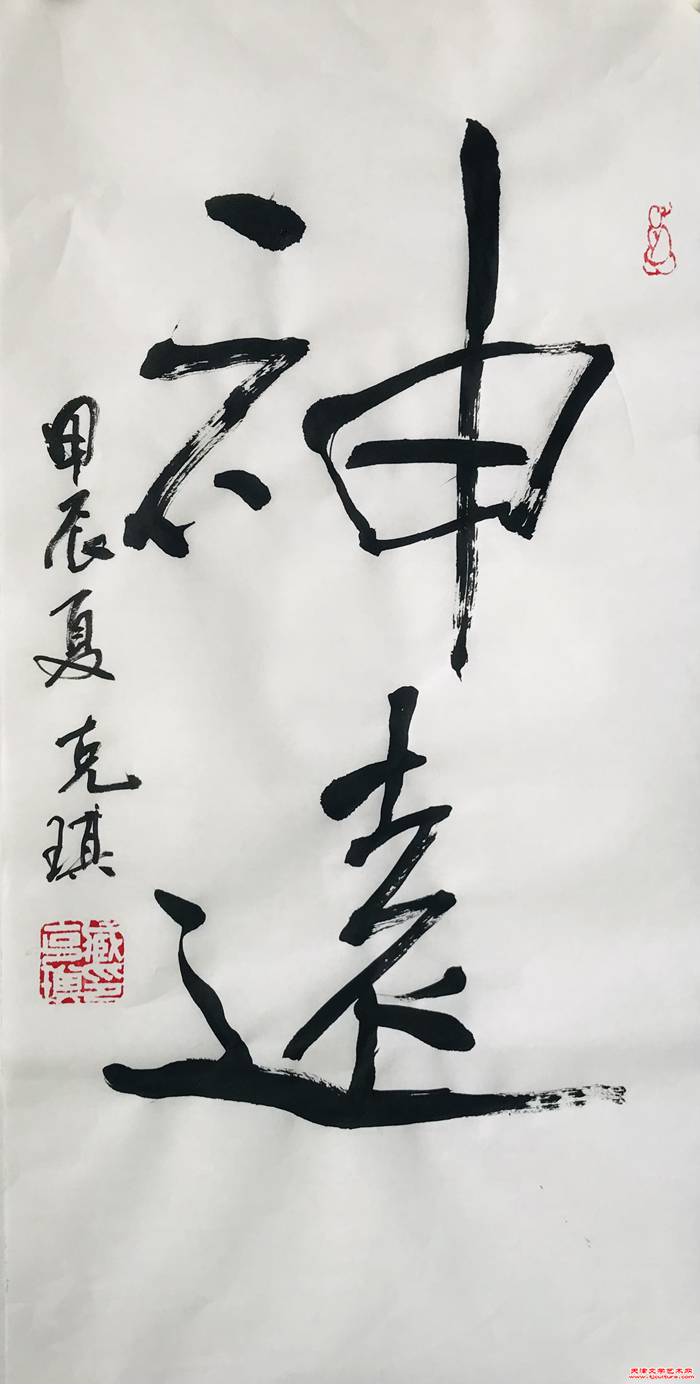 神遠
甲辰夏 克琪
天津文学艺术网
www.tjculture.com